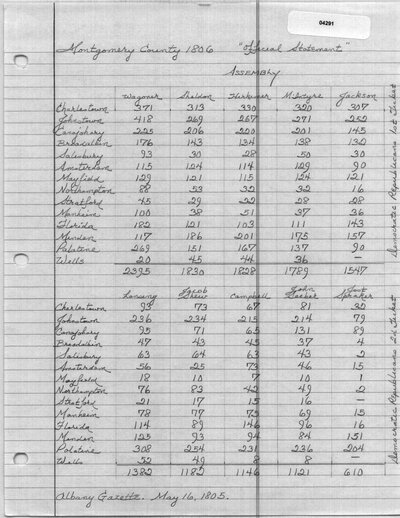 04291
Montgomery County 1806 "Official Statement"
Assembly
Wagoner Sheldon Herkimer McIntyre Jackson
Charlestown 371 313 330 320 307
Johnstown 418 269 267 271 252
Canajohary 225 206 220 201 145
Broadalbin 176 143 134 138 132
Salisbury 93 30 28 50 30
Amsterdam 115 124 114 129 90
Mayfield 129 121 115 124 121
Northampton 88 53 32 32 16
Stratford 45 29 22 28 28
Manheim 100 38 51 37 36
Florida 182 121 103 111 143
Minden 117 186 201 175 157
Palatine 269 151 167 137 90
Wells 20 45 44 36 —
2395 1830 1828 1789 1547
Democratic Republicans 1st Ticket
Lansing Jacob Snew Campbell John Seeber Jost Spraker
Charlestown 93 73 67 81 32
Johnstown 236 234 215 214 79
Canajohary 95 71 65 131 89
Broadalbin 47 43 45 37 4
Salisbury 63 64 63 43 2
Amsterdam 56 25 73 46 15
Mayfield 18 10 7 10 1
Northampton 76 83 42 49 2
Stratford 21 17 15 16 —
Manheim 78 77 75 69 15
Florida 114 89 146 96 16
Minden 125 93 94 84 151
Palatine 308 254 231 236 204
Wells 52 49 8 8 —
1382 1182 1146 1121 610
Democratic Republicans 2d Ticket
Albany Gazette. May 16, 1805.